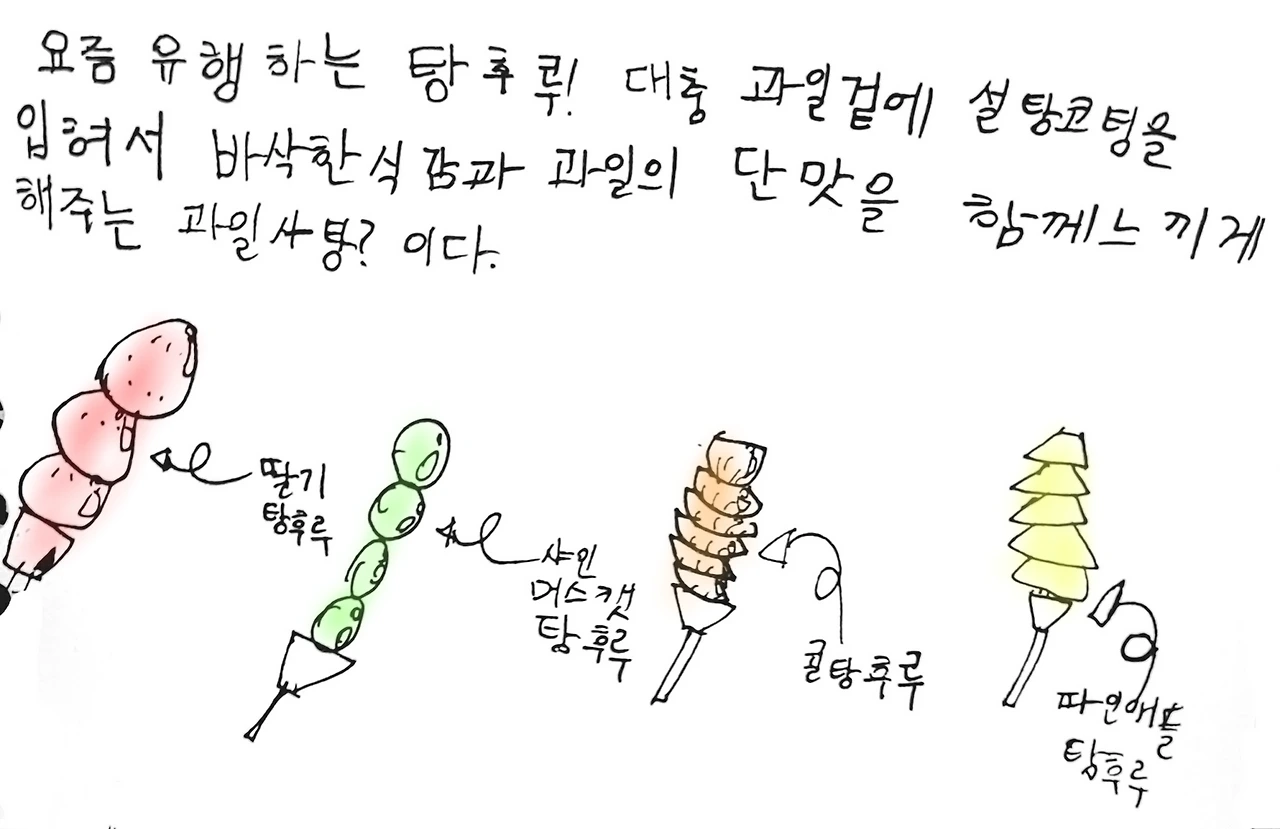 요즘 유행하는 탕후루! 대충 과일겉에 설탕코팅을
입혀서 바삭한식감과 과일의 단맛을 함께느끼게
해주는 과일사탕? 이다.
딸기
탕후루
샤인
머스캣
탕후루
귤탕후루
파인애플
탕후루